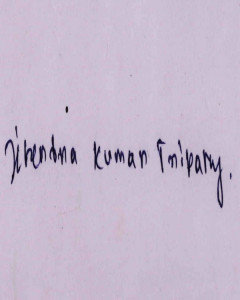 Jitendna Kuman Tnipathy.